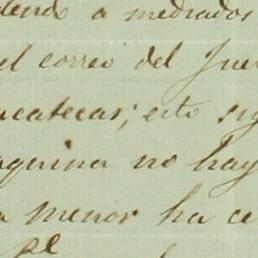 dendo a mediados
el correo del Jue
acatecas; esto sig
aquina no hay
menor ha ce
pl